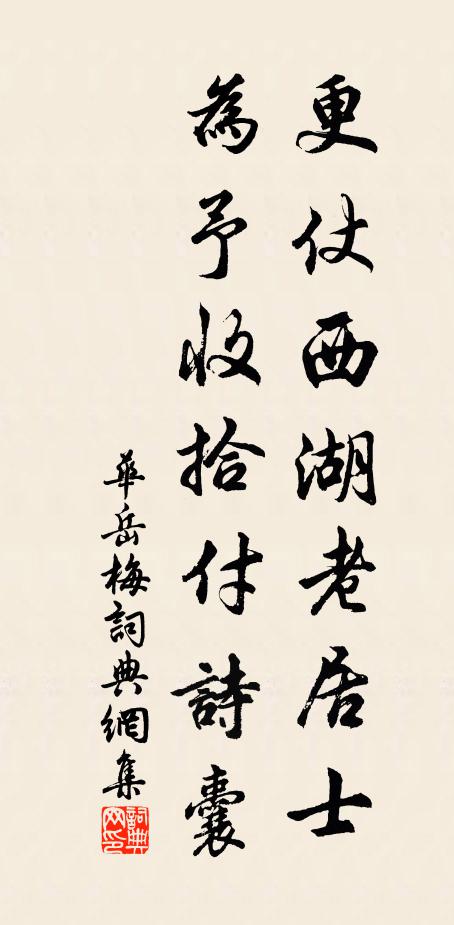 更仗西湖老居士
為予收拾付詩囊
華岳梅詞典網集
詞典網印